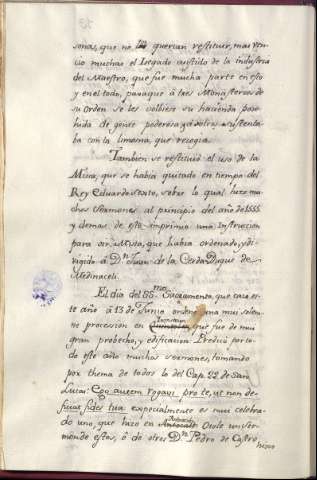 sonas, que no las querian restituir, mas ven-
cio muchas el Legado asistido de la industria
del Maestro, que fue mucha parte en esto
y en el todo, para que â tres Monasterios de
su Orden se les volbiese su hacienda pose-
hida de gente poderosa, y â otros sustenta-
ba con la limosna, que recogia.
Tambien se restituió el uso de la
Misa, que se habia quitado en tiempo del
Rey Eduardo Sexto, sobre lo qual hizo mu-
chos Sermones al principio del año de 1555.
y demas de esto imprimio una Instruccion
para oir Missa, que habia ordenado, y di-
rigido â Dn. Juan de la Cerda Duque de
Medinaceli.
El dia del SS.mo Sacramento, que cayo es-
te año â 13 de Junio ordenó una mui solem-
ne procession en que fue de mu-
gran probecho, y edificacion. Predicó por to-
do este año muchos sermones, tomando
por thema de todos lo del Cap. 22 de San
Lucas: Ego autem rogavi pro te, ut non de-
ficiat fides tua especialmente es mui celebra-
do uno, que hizo en Oyole un ser-
mon de estos, ô de otros Dn. Pedro de Castro,